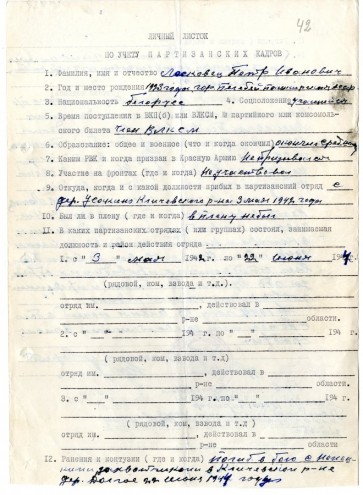 42
ЛИЧНЫЙ ЛИСТОК
ПО УЧЕТУ ПАРТИЗАНСКИХ КАДРОВ
1. Фамилия, имя и отчество Пётр Иванович
2. Год и место рождения
3. Национальность белорус 4. Соцположение учащийся
5. Время поступления в ВКП(б) или ВЛКСМ, № партийного или комсомоль-
ского билета член ВЛКСМ
6. Образование: общее и военное (что и когда окончил)
7. Каким РВК и когда призван в Красную Армию Не призывался
8. Участие на фронтах (где и когда) Не участвовал
9. Откуда, когда и с какой должности прибыл в партизанский отряд с
дер. Кличевского р-на 3 мая 1942 года
10. Был ли в плену (где и когда) в плену не был
11. В каких партизанских отрядах ( или группах) состоял, занимаемая
должность и район действия отряда
1. с " 3 " мая 1942 г. по "22" июня 194
(рядовой, ком, взвода и т.д.).
отряд им. действовал в
р-не области.
2. с " " 194 г. по " " 194 г.
( рядовой, ком, взвода и т.д)
отряд им. действовал в
р-не области.
3. с " " 194 г. по " " 194 г.
( рядовой, ком, взвода и т.д)
отряд им. действовал в
р-не области.
12. Ранения и контузии ( где и когда) погиб в бою с немец-
кими захватчиками в Кличевском р-не
дер. Долгое 22 июня